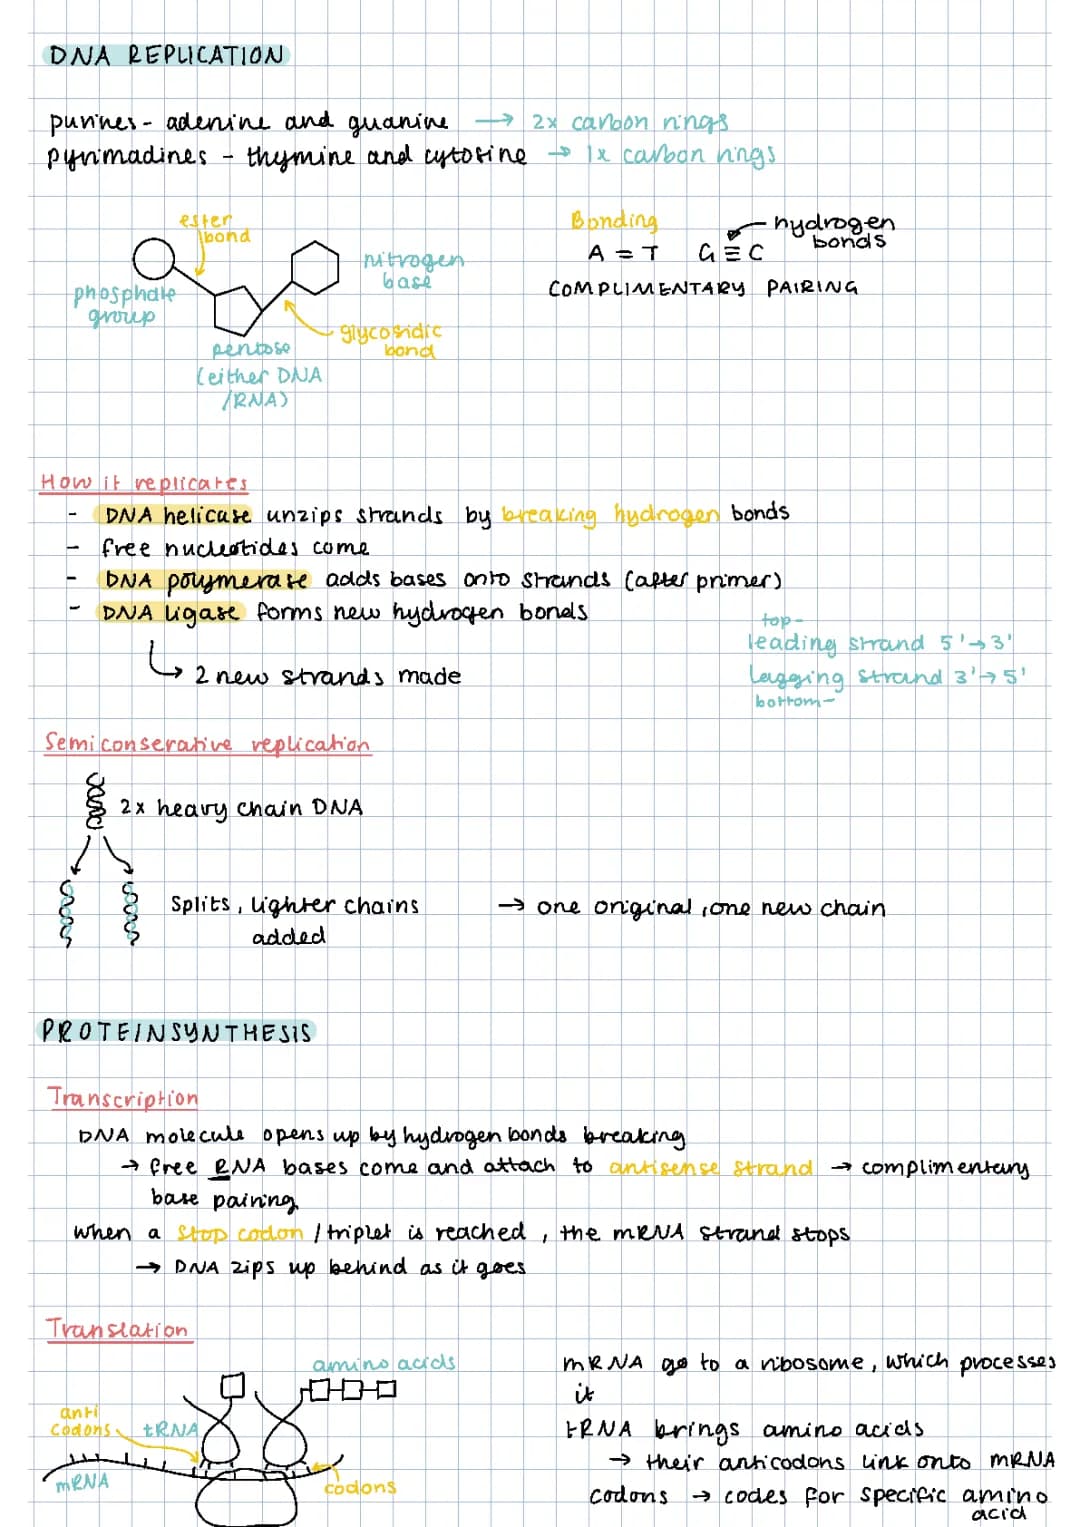 DNA REPLICATION
purines - adenine and guanine → 2x carbon rings
pyrimadines - thymine and cytosine → 1x carbon rings
ester bond
phosphate group
nitrogen base
glycosidic bond
pentose (either DNA /RNA)
Bonding
hydrogen bonds
A = T G ≡ C
COMPLIMENTARY PAIRING
How it replicates
- DNA helicase unzips strands by breaking hydrogen bonds
- free nucleotides come
- DNA polymerase adds bases onto strands (after primer)
- DNA ligase forms new hydrogen bonds
↳ 2 new strands made
top -
leading strand 5'→3'
lagging strand 3'→5'
bottom -
Semiconserative replication
2x heavy chain DNA
Splits, lighter chains added
→ one original, one new chain
PROTEINSYNTHESIS
Transcription
DNA molecule opens up by hydrogen bonds breaking
→ free RNA bases come and attach to antisense strand → complimentary
base pairing
when a stop codon / triplet is reached, the mRNA strand stops
→ DNA zips up behind as it goes
Translation
amino acids
anti codons
tRNA
mRNA
codons
mRNA go to a ribosome, which processes
it
tRNA brings amino acids
→ their anticodons link onto mRNA
codons → codes for specific amino
acid